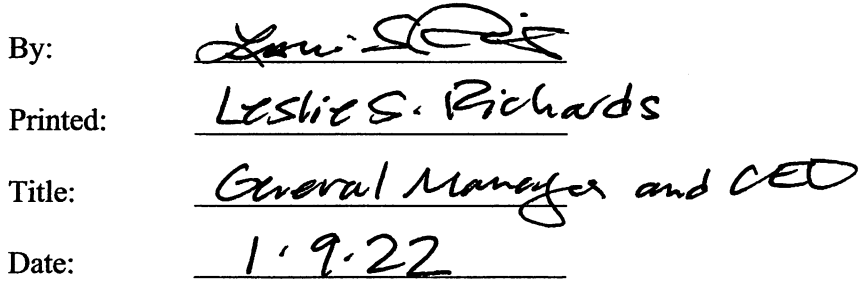 By:
Printed: Leslie S. Richards
Title: General Manager and CEO
Date: 1.9.22